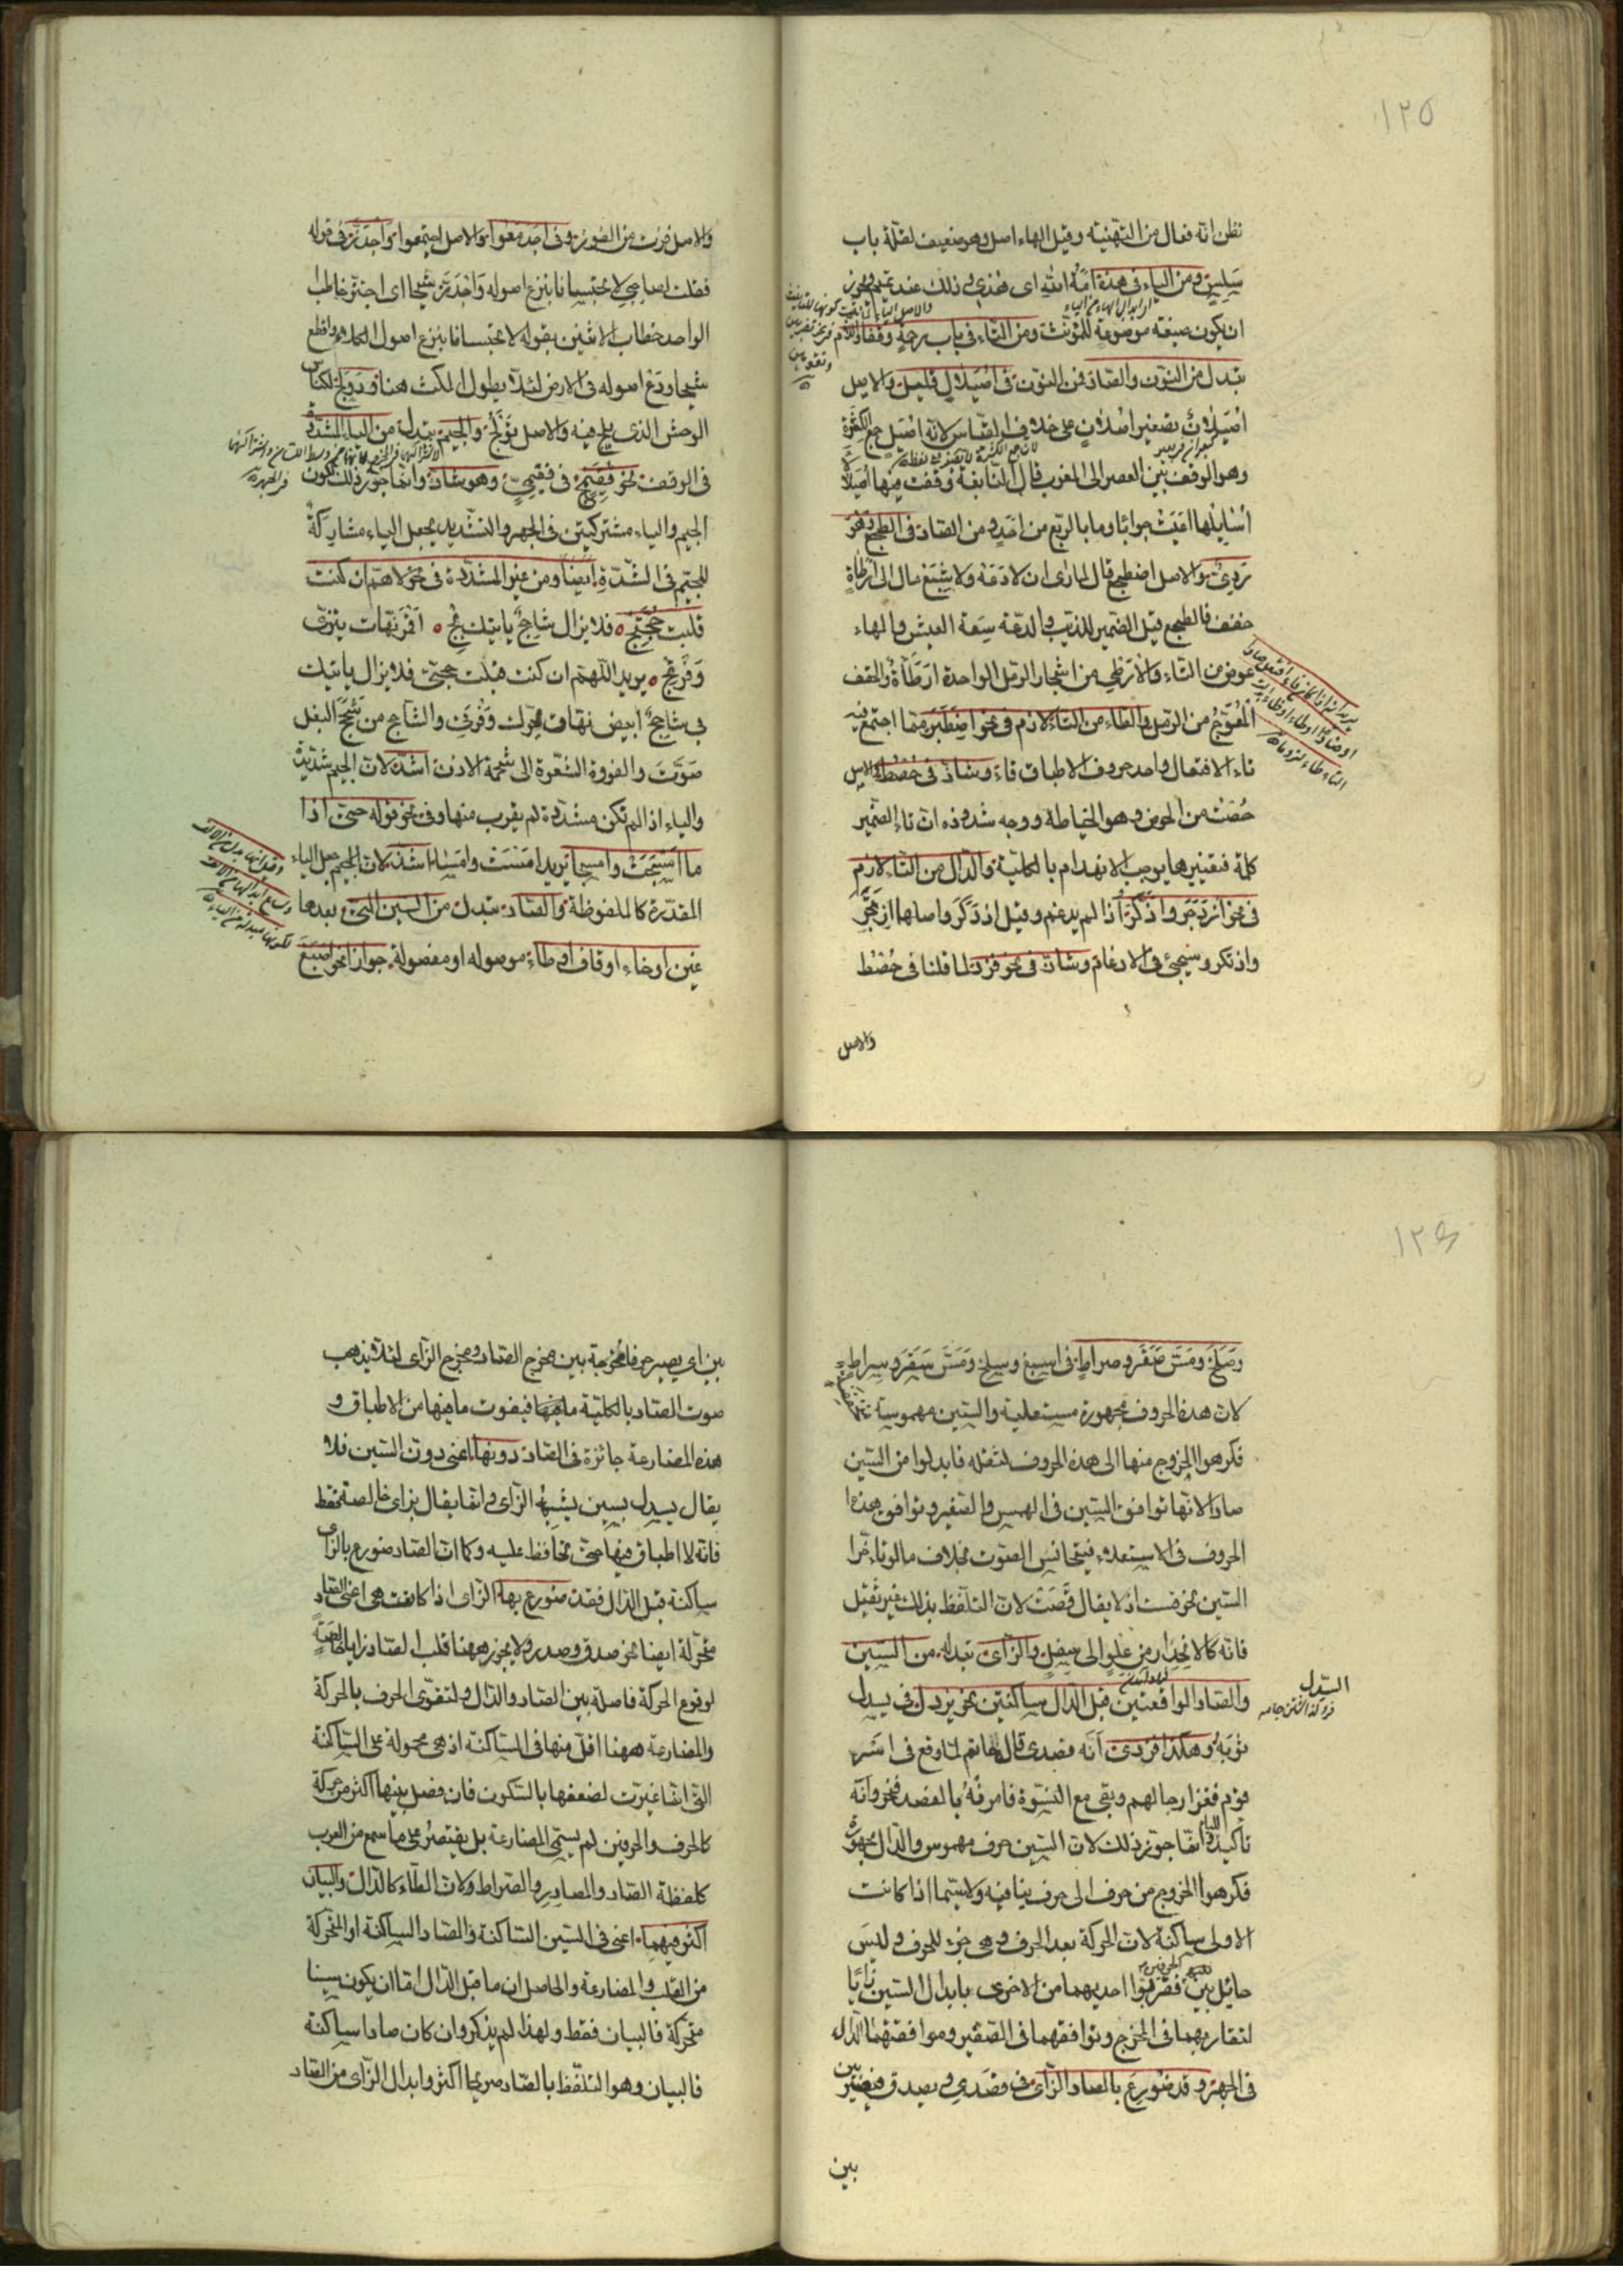 ١٢٥
نظن انه فعال من التهنية وقيل الهاء اصل وهو ضعيف لقلة باب
سَلِسٍ ومن الياء فى هذه امة الله اى هذى وذلك عند تميم ويجوز
ان يكون صيغة موضوعة للمؤنث ومن التاء فى باب رحمة وقفا واللام
تبدل من النون والضاد فمن النون فى اُصَيلالٍ قليل والاصل
اُصَيلانٌ تصغير اصلان على خلاف القياس لانه اصيل جمع الكثرة
وهو الوقت بين العصر الى المغرب قال النابغة وقفت فيها اُصَيلالًا
اُسائِلُها اعيَتْ جوابًا وما بالربع من احد ومن الضاد فى الطجع وهو
ردىءٌ والاصل اضطجع قال لما راى ان لا دعه ولا شبع مال الى ارطاة
حقف فالطجع قيل الضمير للذئب والدعة سعة العيش والهاء
عوض من التاء والارطى من اشجار الرمل الواحدة ارطاة والحقف
المعوّج من الرمل والطاء من التاء لازم فى نحو اصطبر مما اجتمع فيه
تاء الافتعال واحد حروف الاطباق فاءً وشاذ فى حُصْطُ والاصل
حُصْتُ من الحوص وهو الخياطة ووجه شذوذه ان تاء الضمير
كلمة فتغييرها يوجب الانهدام بالكلية والدال من التاء لازم
فى نحو ازدجر واذدكر اذا لم يدغم وقيل اذدكر واصلها ازتجر
واذتكر وسيجئ فى الادغام وشاذ فى نحو فزد لما قلنا فى حُصْطُ
والاصل
والاصل فزت من الفوز وفى اجدمعوا والاصل اجتمعوا واجدز فى قوله
فقلت لصاحبى لا تحبسانا بنزع اصوله واجدز شيحا اى اجتز خاطب
الواحد خطاب الاثنين بقوله لا تحبسانا بنزع اصول الكلاء واقطع
شيحا ودع اصوله فى الارض لئلا يطول المكث هنا ودولج لكناس
الوحش الذى يلج فيه والاصل تولج والجيم تبدل من الياء المشددة
فى الوقف نحو فقيمج فى فقيمىّ وهو شاذ وانما جوز ذلك لكون
الجيم والياء مشتركتين فى الجهر والتشديد يجعل الياء مشاركة
للجيم فى الشدة ايضا ومن غير المشددة فى نحو لاهم ان كنت
قبلت حجتج فلا يزال شاحج ياتيك بج اقمر نهات ينزى
وفرتج يريد اللهم ان كنت قبلت حجتى فلا يزال ياتيك
بى شاحج ابيض نهات يحرك وفرتى والشاحج من شحج البغل
صوّت والفروة الشعرة الى شحمة الاذن اشذ لان الجيم شديدة
والياء اذا لم تكن مشددة لم يقرب منها وفى نحو قوله حتى اذا
ما امسجت وامسجا يريد امسيت وامسى اشذ لان الجيم جعل الياء
المقدرة كالملفوظة والصاد تبدل من السين التى بعدها
غين او خاء او قاف او طاء موصوله او مفصولة جوازا نحو اصبغ
١٢٦
وصلخ ومس صقر وصراط فى اسبغ وسلخ ومس سقر وسراط
لان هذه الحروف مجهورة مستعلية والسين مهموسة
فكرهوا الخروج منها الى هذه الحروف لثقله فابدلوا من السين
صادا لانها توافق السين فى الهمس والصفير وتوافق هذه
الحروف فى الاستعلاء فيتجانس الصوت بخلاف ما لو تاخرا
السين نحو قست اذ لا يقال قصت لان التلفظ بذلك غير ثقيل
فانه كالانحدار من علو الى سفل والزاى تبدل من السين
والصاد الواقعتين قبل الدال ساكنتين نحو يزدل فى يسدل
السّدل
ثوبه وهكذا فزدى انه فصدى قال حاتم لما وقع فى اسر
قوم فغزا رجالهم وبقى مع النسوة فامرنه بالفصد فنحر وانه
تاكيد للياء وانما جوز ذلك لان السين حرف مهموس والدال مجهورة
فكرهوا الخروج من حرف الى حرف ينافيه ولا سيما اذا كانت
الاولى ساكنة لان الحركة بعد الحرف وهى جزء للحرف وليس
حائل بين فقربوا احديهما من الاخرى بابدال السين زايًا
لتقاربهما فى المخرج وتوافقهما فى الصفير وموافقتهما الدال
فى الجهر وقد ضورع بالصاد الزاى فى فصدى ويصدق فيصير بين
بين
بين اى يصير حرفا مخرجه بين مخرج الصاد ومخرج الزاى لئلا يذهب
صوت الصاد بالكلية فيفوت ما فيها من الاطباق و
هذه المضارعة جائزة فى الصاد دونها اعنى دون السين فلا
يقال يسدل بسين يشبه الزاى وانما يقال بزاى خالصة فقط
فانه لا اطباق فيها حتى يحافظ عليه وكما ان الصاد ضورع بالزاى
ساكنة قبل الدال فقد ضورع بها الزاى اذا كانت هى اعنى الصاد
متحركة ايضا نحو صدق وصدر ولا يجوز ههنا قلب الصاد زايا خالصة
لوقوع الحركة فاصلة بين الصاد والدال ولتقوى الحرف بالحركة
والمضارعة ههنا اقل منها فى الساكنة اذ هى محمولة على الساكنة
التى انما غيرت لضعفها بالسكون فان فصل بينها اكثر من حركة
كالحرف والحرفين لم يستمر المضارعة بل يقتصر على ما سمع من العرب
كلفظة الصاد والمصادر والصراط ولان الطاء كالدال والبيان
اكثر فيهما اعنى فى السين الساكنة والصاد الساكنة او المتحركة
من القلب والمضارعة والحاصل ان ما قبل الدال اما ان يكون سينا
متحركة فالبيان فقط ولهذا لم يذكر وان كان صادا ساكنة
فالبيان وهو التلفظ بالصاد صريحا اكثر وابدال الزاى من الصاد